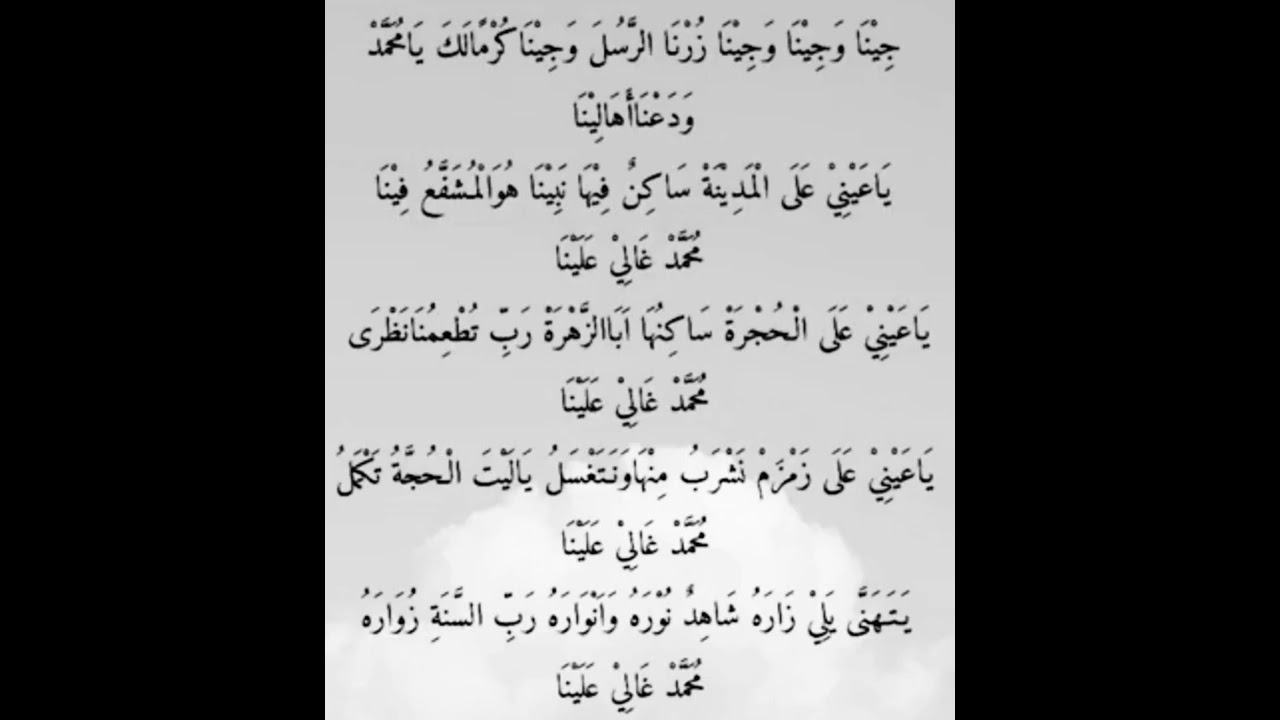 جِيْنَا وَجِيْنَا وَجِيْنَا زُرْنَا الرَّسُلَ وَجِيْنَاكُرْمًالَكَ يَامُحَمَّدْ
وَدَعْنَاأَهَالِيْنَا
يَاعَيْنِيْ عَلَى الْمَدِيْنَةْ سَاكِنٌ فِيْهَا نَبِيْنَا هُوَالْمُشَفَّعُ فِيْنَا
مُحَمَّدْ غَالِيْ عَلَيْنَا
يَاعَيْنِيْ عَلَى الْحُجْرَةْ سَاكِنُهَا اَبَاالزَّهْرَةْ رَبِّ تُطْعِمُنَانَظْرَى
مُحَمَّدْ غَالِيْ عَلَيْنَا
يَاعَيْنِيْ عَلَى زَمْزَمْ نَشْرَبُ مِنْهَاوَنَتَغْسَلُ يَالَيْتَ الْحُجَّةُ تَكْمَلُ
مُحَمَّدْ غَالِيْ عَلَيْنَا
يَتَهَنَّى يَلِيْ زَارَهُ شَاهِدٌ نُوْرَهُ وَاَنْوَارَهُ رَبِّ السَّنَةِ زُوَارَهُ
مُحَمَّدْ غَالِيْ عَلَيْنَا